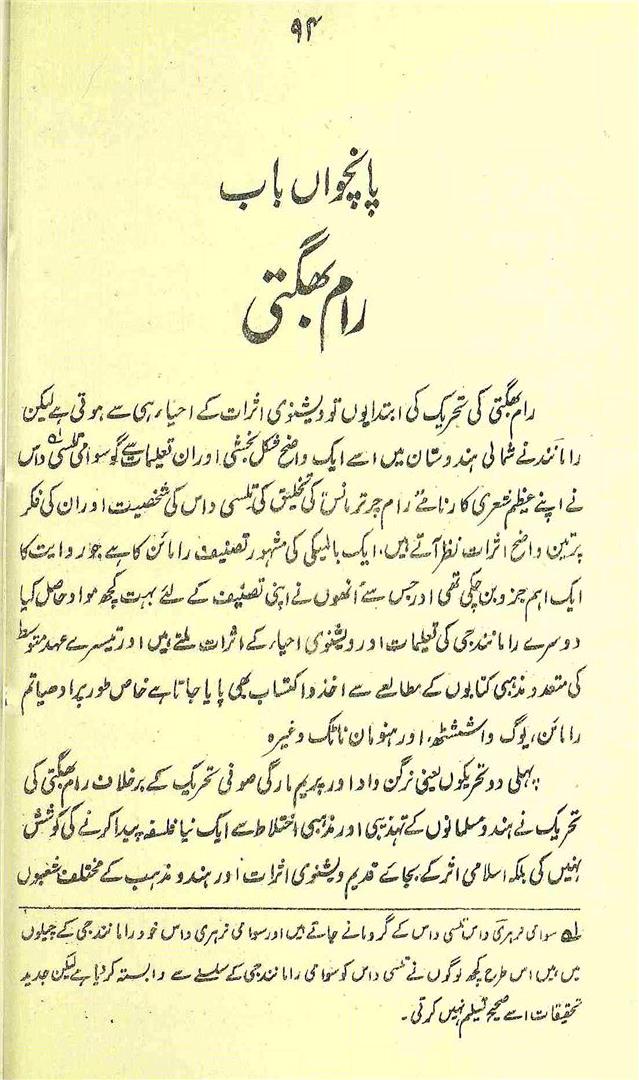 ۹۴
پانچواں باب
رام بھگتی
رام بھگتی کی تحریک کی ابتدا یوں تو ویشنوی اثرات کے احیاء ہی سے ہوتی ہے لیکن
رامانند نے شمالی ہندوستان میں اسے ایک واضح شکل بخشی اور ان تعلیمات سے گوسوامی تلسی داس
نے اپنے عظیم شعری کارنامے رام چرتر مانس کی تخلیق کی تلسی داس کی شخصیت اور ان کی فکر
پر تین واضح اثرات نظر آتے ہیں، ایک بالمیکی کی مشہور تصنیف رامائن کا ہے جو روایت کا
ایک اہم جزو بن چکی تھی اور جس سے انھوں نے اپنی تصنیف کے لئے بہت کچھ مواد حاصل کیا
دوسرے رامانند جی کی تعلیمات اور ویشنوی احیاء کے اثرات ملتے ہیں اور تیسرے عہد متوسط
کی متعدد مذہبی کتابوں کے مطالعے سے اخذ و اکتساب بھی پایا جاتا ہے خاص طور پر ادھیاتم
رامائن، یوگ واششٹھ، اور ہنومان ناٹک وغیرہ
پہلی دو تحریکوں یعنی نرگن واد اور پریم مارگی صوفی تحریک کے برخلاف رام بھگتی کی
تحریک نے ہندو مسلمانوں کے تہذیبی اور مذہبی اختلاط سے ایک نیا فلسفہ پیدا کرنے کی کوشش
نہیں کی بلکہ اسلامی اثر کے بجائے قدیم ویشنوی اثرات اور ہندو مذہب کے مختلف شعبوں
لہ سوامی نرہری داس تلسی داس کے گرو مانے جاتے ہیں اور سوامی نرہری داس خود رامانند جی کے چیلوں
میں ہیں اس طرح کچھ لوگوں نے تلسی داس کو سوامی رامانند جی کے سلسلے سے وابستہ کر دیا ہے لیکن جدید
تحقیقات اسے صحیح تسلیم نہیں کرتی۔